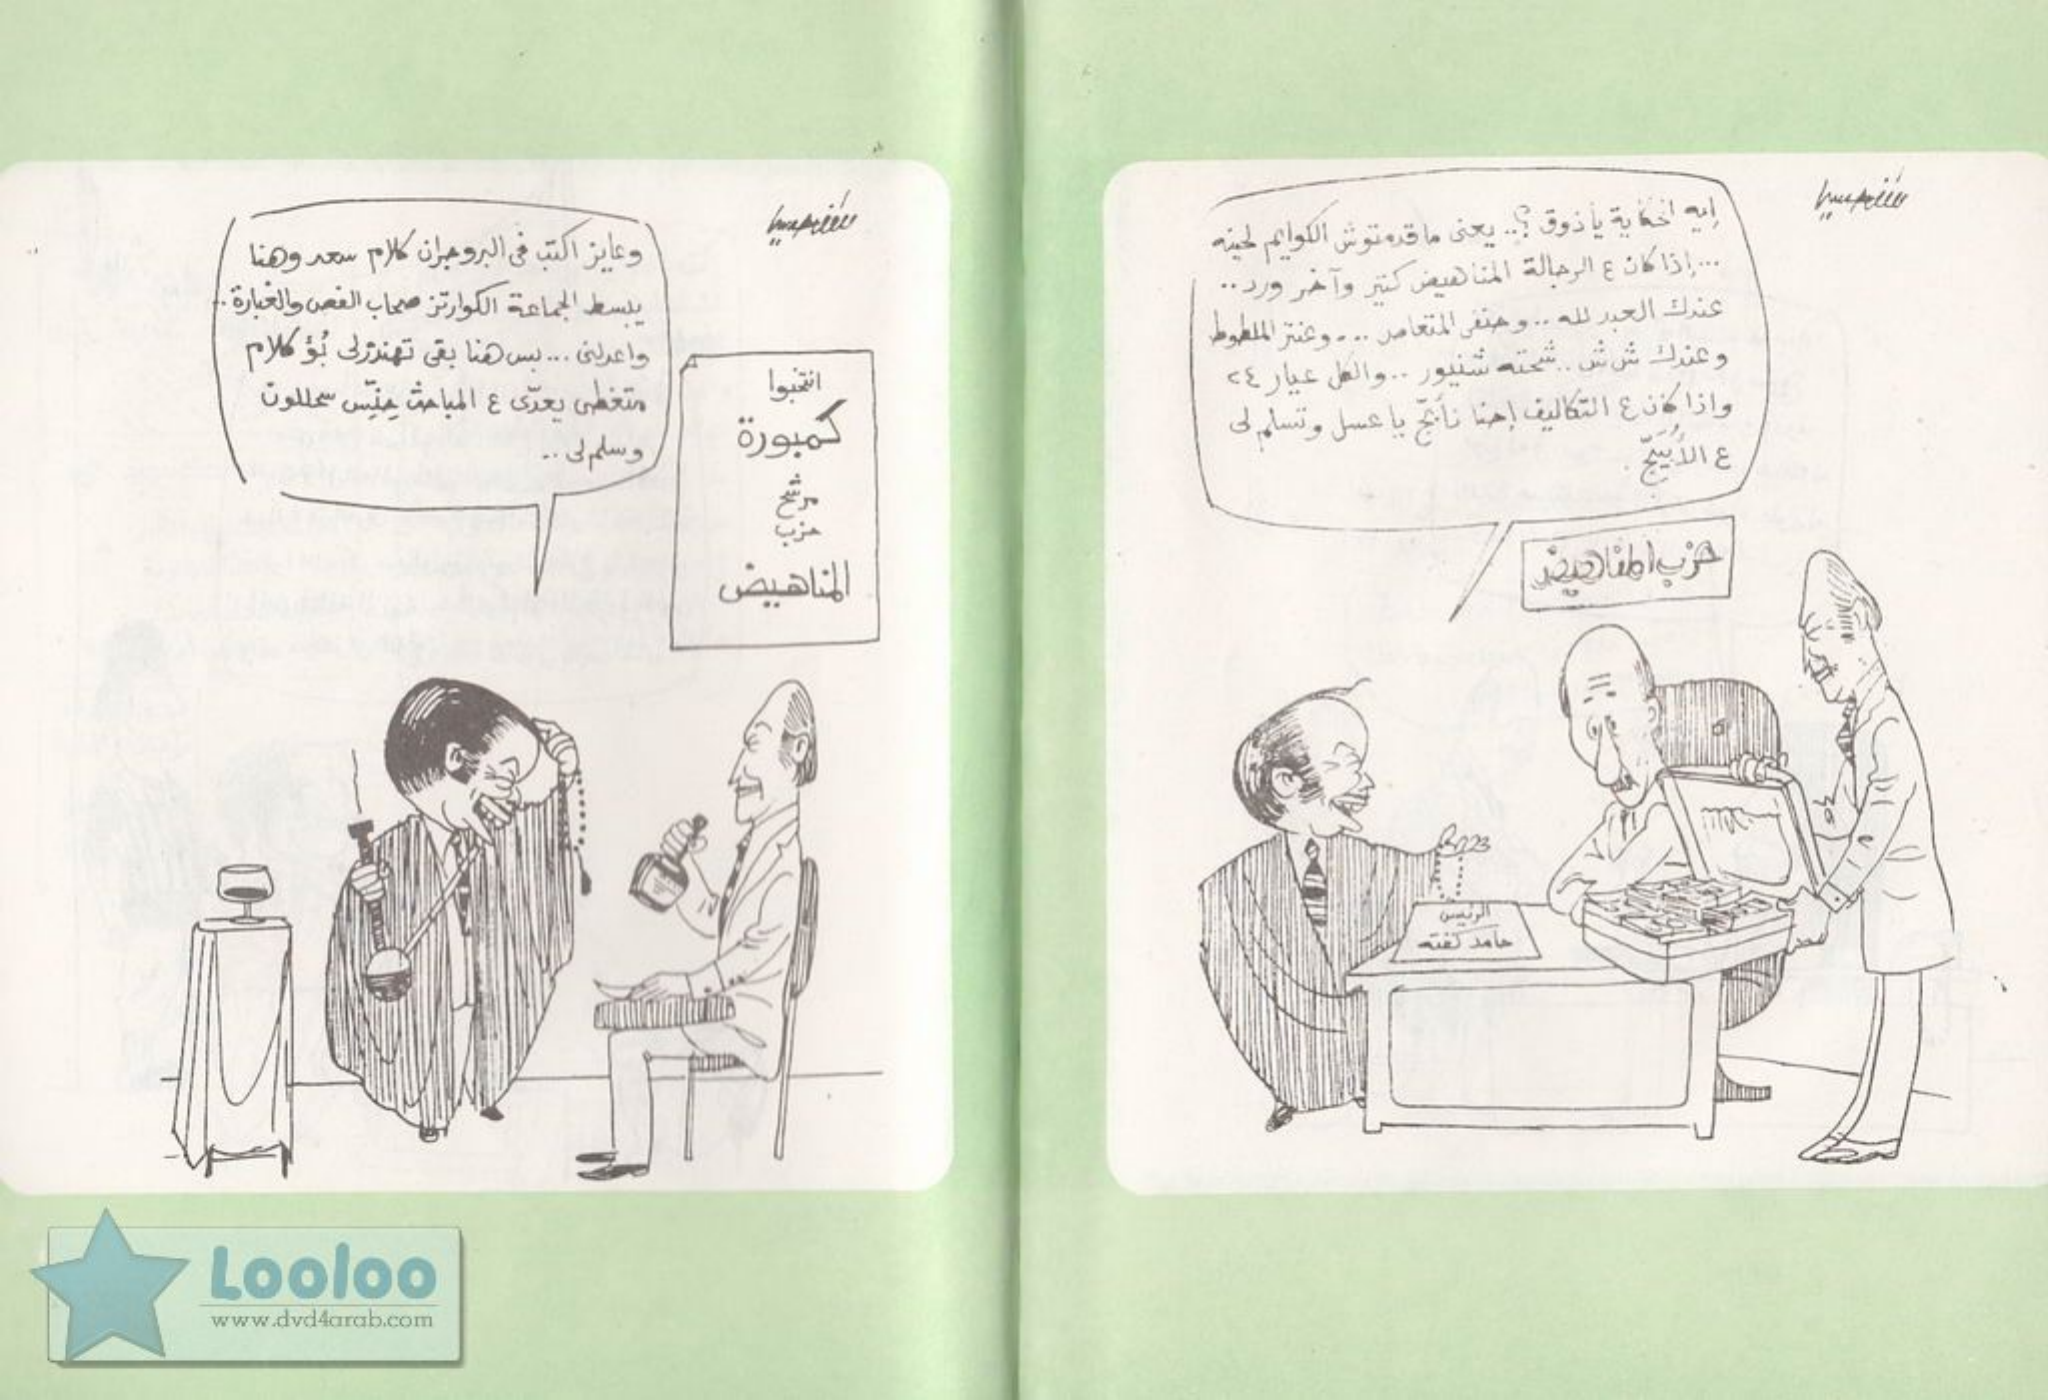 إيه الحكاية يا ذوق ؟.. يعنى ما قدمتوش الكوايم لحينه
...إذا كان ع الرجالة المناهيض كتير وآخر ورد..
عندك العبد لله .. وحنفى المتعاص ... وعنتر الملطوط
وعندك ش ش .. شحته شنيور .. والكل عيار ٢٤
وإذا كان ع التكاليف إحنا نأبج يا عسل وتسلم لى
ع الأبيج .
حزب المناهيض
الرئيس
حامد كفته
وعايز اكتب فى البروجران كلام سعد وهنا
يبسط الجماعة الكوارتز صحاب الفص والغبارة..
واعدلنى ... بس هنا بقى تهندزلى بُؤ كلام
متغطى يعدّى ع المباحث حِنيِّن سحللوت
وسلم لى ..
انتخبوا
كمبورة
مرشح
حزب
المناهيض
Looloo
www.dvd4arab.com